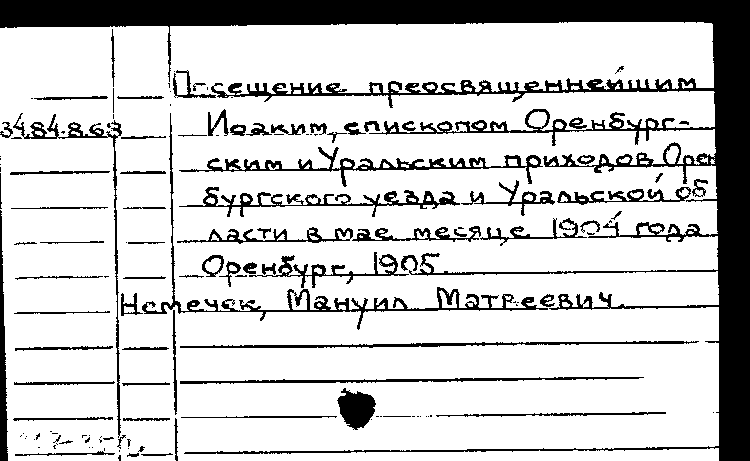 Посещение преосвященнейшим
34.84.8.63
Иоаким, епископом Оренбург-
ским и Уральским приходов Орен
бургского уезда и Уральской об
ласти в мае месяце 1904 года
Оренбург, 1905.
Немечек, Мануил Матвеевич.